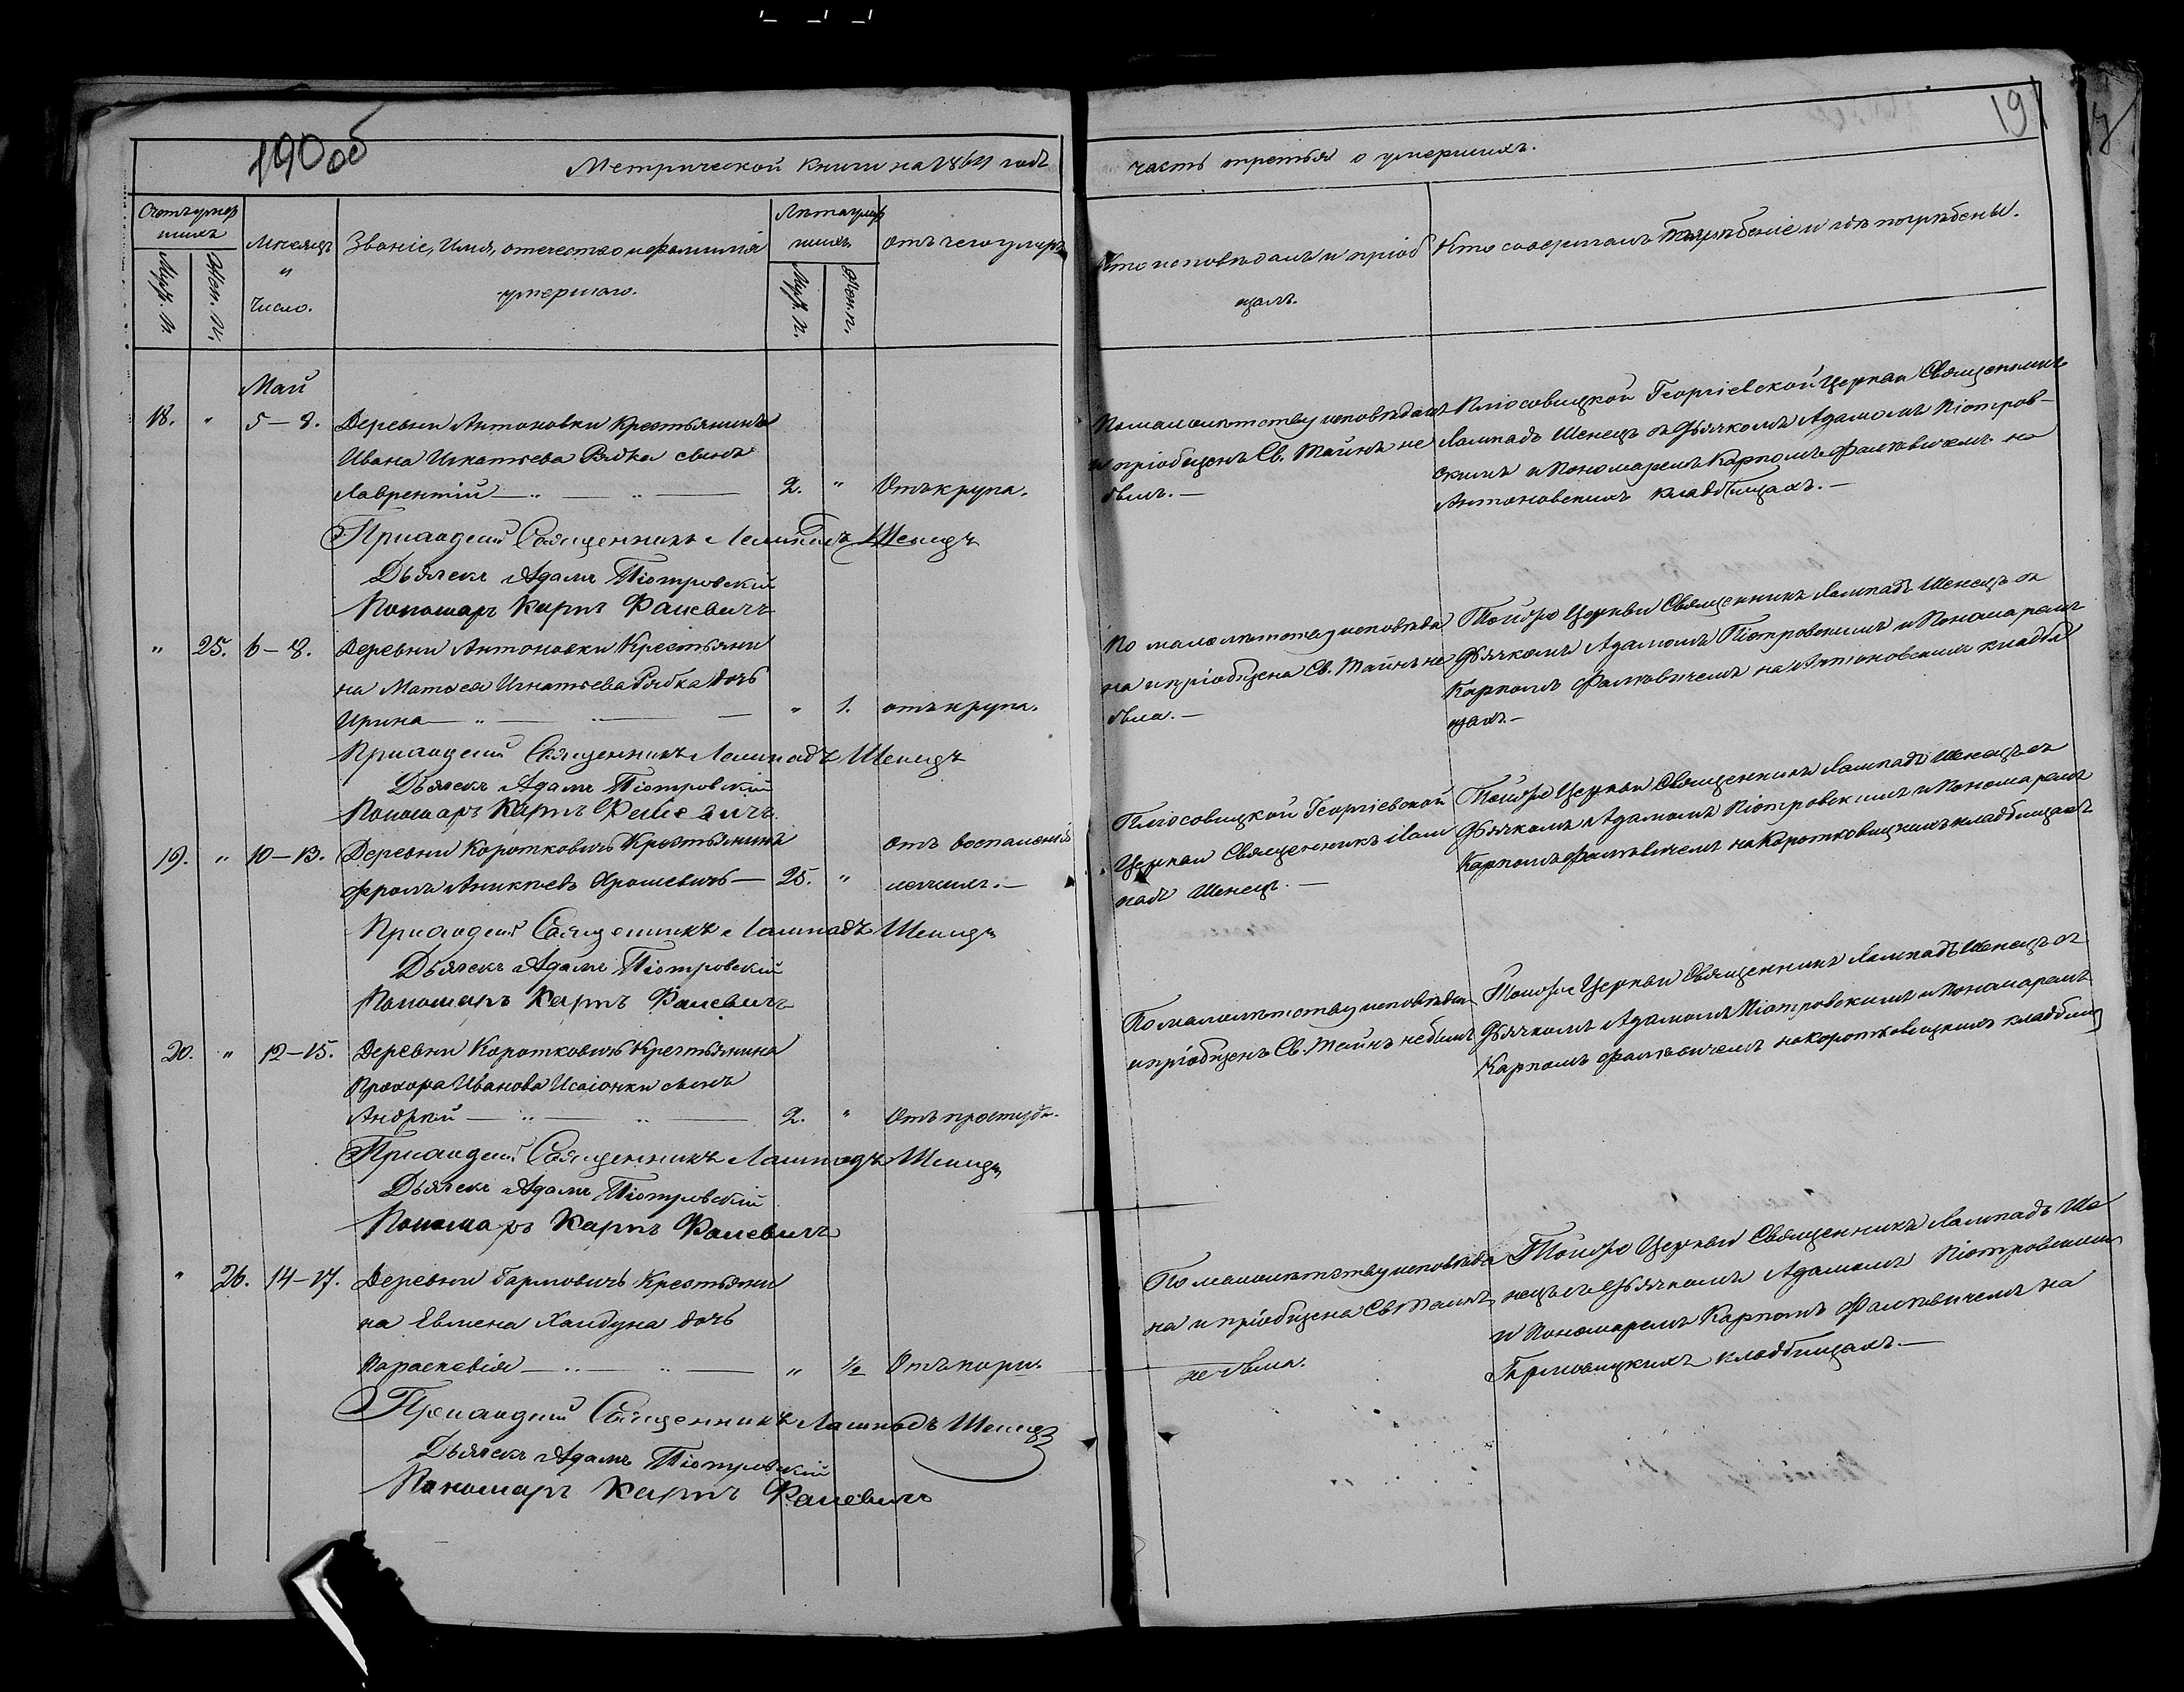 190 об
191
Метрической книги на 1864 годъ
часть третья о умершихъ.
Счетъ умер
шихъ
Муж. п.
Жен. п.
Мѣсяцъ
и
число.
Званіе, Имя, отечество и фамилія
умершаго.
Лѣта умер
шихъ
Муж. п.
Жен. п.
отъ чего умеръ
Кто исповѣдалъ и пріоб
щалъ.
Кто совершалъ погребеніе и гдѣ погребены.
Май
18. " 5–8. Деревни Антоновки Крестьянина
Ивана Игнатьева Рябка сынъ
Лаврентій 2. " Отъ крупа.
По малолѣтству исповѣданъ
и пріобщенъ Св. Тайнъ не
былъ.
Плюсовицкой Георгіевской Церкви Священникъ
Лампадъ Шенецъ съ Дьячкомъ Адамомъ Піотров-
скимъ и Пономаремъ Карпомъ Фалевичемъ на
Антоновскихъ кладбищахъ.
Приходскій Священникъ Лампадъ Шенецъ
Дьячекъ Адамъ Піотровскій
Пономарь Карпъ Фалевичъ
" 25. 6–8. Деревни Антоновки Крестьяни
на Матвея Игнатьева Рябка дочь
Ирина " 1. отъ крупа.
По малолѣтству исповѣда
на и пріобщена Св. Тайнъ не
была.
Тойже Церкви Священникъ Лампадъ Шенецъ съ
Дьячкомъ Адамомъ Піотровскимъ и Пономаремъ
Карпомъ Фалевичемъ на Антоновскихъ кладби
щахъ.
Приходскій Священникъ Лампадъ Шенецъ
Дьячекъ Адамъ Піотровскій
Пономарь Карпъ Фалевичъ
19. " 10–13. Деревни Короткович Крестьянинъ
Фролъ Аникіевъ 25. " отъ воспаленія
легкихъ.
Плюсовицкой Георгіевской
Церкви Священникъ Лам
падъ Шенецъ.
Тойже Церкви Священникъ Лампадъ Шенецъ съ
Дьячкомъ Адамомъ Піотровскимъ и Пономаремъ
Карпомъ Фалевичемъ на Коротковицкихъ кладбищахъ
Приходскій Священникъ Лампадъ Шенецъ
Дьячекъ Адамъ Піотровскій
Пономарь Карпъ Фалевичъ
20. " 12–15. Деревни Короткович Крестьянина
Прохора Иванова сынъ
Андрей 2. " Отъ простуды.
По малолѣтству исповѣданъ
и пріобщенъ Св. Тайнъ не былъ
Тойже Церкви Священникъ Лампадъ Шенецъ съ
Дьячкомъ Адамомъ Піотровскимъ и Пономаремъ
Карпомъ Фалевичемъ на Коротковицкихъ кладбищ
Приходскій Священникъ Лампадъ Шенецъ
Дьячекъ Адамъ Піотровскій
Пономарь Карпъ Фалевичъ
" 26. 14–17. Деревни Гармовичъ Крестьяни
на Евмена Хандуна дочь
Параскевія " ½ Отъ кори.
По малолѣтству исповѣда
на и пріобщена Св Таинъ
не была.
Тойже Церкви Священникъ Лампадъ Ше
нецъ съ Дьячкомъ Адамомъ Піотровскимъ
и Пономаремъ Карпомъ Фалевичемъ на
Гармовицкихъ кладбищахъ.
Приходскій Священникъ Лампадъ Шенецъ
Дьячекъ Адамъ Піотровскій
Пономарь Карпъ Фалевичъ